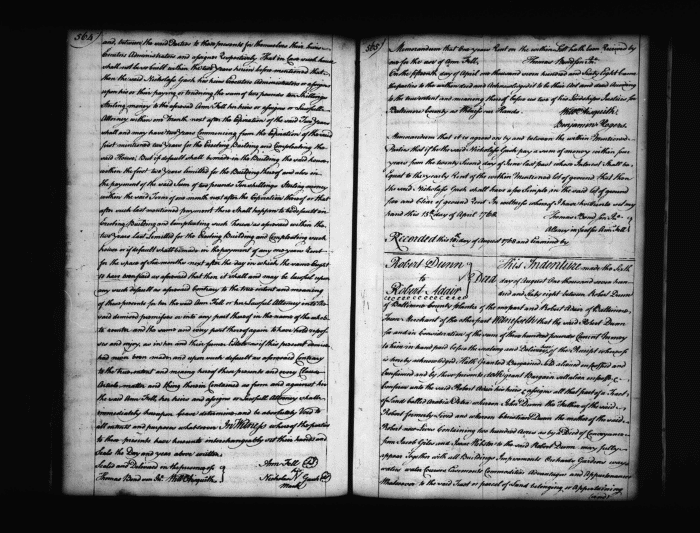 564
and between the said Parties to these presents for themselves their heirs
Executors Administrators and assigns Respectively That in Case such house
shall not be so built within the two years herein before mentioned that
then the said Nicholas Gash his heirs Executors Administrators or assigns
upon his or their paying or tendring the sum of two pounds ten Shillings
Sterling money to the aforesaid Ann Fell her heirs or assigns or Lawfull
Attorney within one month next after the expiration of the said Two years
shall and may have two years Commencing from the Expiration of the said
first mentioned two years for the Erecting Building and Compleating the
said House; But if default shall be made in the Building the said house
within the first two years limitted for the Building thereof and also in
the payment of the said Sum of two pounds Ten shillings Sterling money
within the said Term of one month next after the expiration thereof or that
after such last mentioned payment there Shall happen to be default in
Erecting Building and Compleating such house as aforesaid within the
two years last Limitted for the Erecting Building and Compleating such
house or if default shall be made in the payment of any one years Rent
for the space of six months next after the day in which the same ought
to have been paid as aforesaid that then it shall and may be lawful upon
any such default as aforesaid Contrary to the true intent and meaning
of these presents for to the said Ann Fell or her Lawful Attorney into the
said demised premises or into any part thereof in the name of the whole
to reenter and the same and every part thereof again to have hold repossess
and enjoy as in her and their former Estate as if this present demise
had never been made and upon such default as aforesaid Contrary
to the true intent and meaning hereof these presents and every Clause
Article matter and thing therein Contained as for and against her
the said Ann Fell her heirs and assigns or Lawfull Attorney shall
immediately thereupon leave determine and be absolutely Void to
all intents and purposes whatsoever In Witness whereof the parties
to these presents have hereunto interchangeably set their hands and
Seals the Day and year above written
Sealed and Delivered in the presence of
Ann Fell
Thomas Bond Jnr. Will Asquith
Nicholas Gash
Mark
565
Memorandum that two years Rent on the within Lott hath been Received by
me for the use of Ann Fell.
Thomas Bond for Jn.
On the fifteenth day of April one thousand seven hundred and Sixty Eight Came
the parties to the within deed and acknowledged it to be their Act and deed according
to the true intent and meaning thereof before us two of his Lordships Justices for
Baltimore County as Witness our Hands.
Will Asquith
Benjamin Rogers
Memorandum that it is agreed on by and between the within Mentioned
Parties that if the said Nicholas Gash pay a sum of money within four
years from the twenty second day of June last past whose Interest Shall be
Equal to the yearly Rent of the within Mentioned Lot of ground that then
the said Nicholas Gash shall have a fee Simple in the said lot of ground
free and clear of ground Rent In witness whereof I have hereunto set my
hand this 15th day of April 1768
Thomas Bond for Jn.
Attorney in fact for Ann Fell
Recorded this day of August 1768 and Examined by
Robert Dunn
to
Robert Adair
Deed
This Indenture made the Sixth
day of August One thousand seven hundred
and Sixty eight between Robert Dunn
of Baltimore County planter of the one part and Robert Adair of Baltimore
Town Merchant of the other part Witnesseth that the said Robert Dunn
for and in Consideration of the sum of three hundred pounds Current money
to him in hand paid before the sealing and Delivery of the Receipt whereof
is hereby acknowledged Hath Granted Bargained Sold aliened enfeoffed and
Confirmed and by these presents doth grant Bargain Sell alien enfeoff &
Confirm unto the said Robert Adair his heirs & assigns all that part of a Tract
of Land Called Arabia Petra whereon John Dunn the Father of the said
Robert formerly Lived and whereon Christina Dunn the mother of the said
Robert now Lives Containing two hundred acres as by a Deed of Conveyance
from Jacob Giles and Isaac Webster to the said Robert Dunn may fully
appear Together with all Buildings Improvements Orchards Gardens ways
waters water Courses Easements Commodities Advantages and Appurtenances
Whatsoever to the said Tract or parcel of Land belonging or Appertaining
(and)